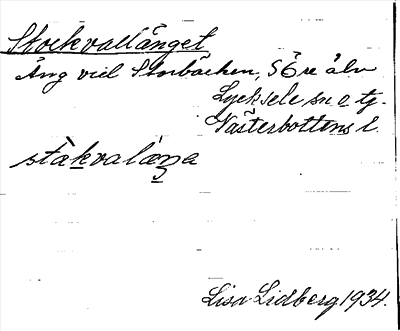 Stockvallänget
Äng vid Storbäcken, S Öre älv
Lycksele sn o tg.
Västerbottens l.
stàkvalàŋa
Lisa Lidberg 1934.